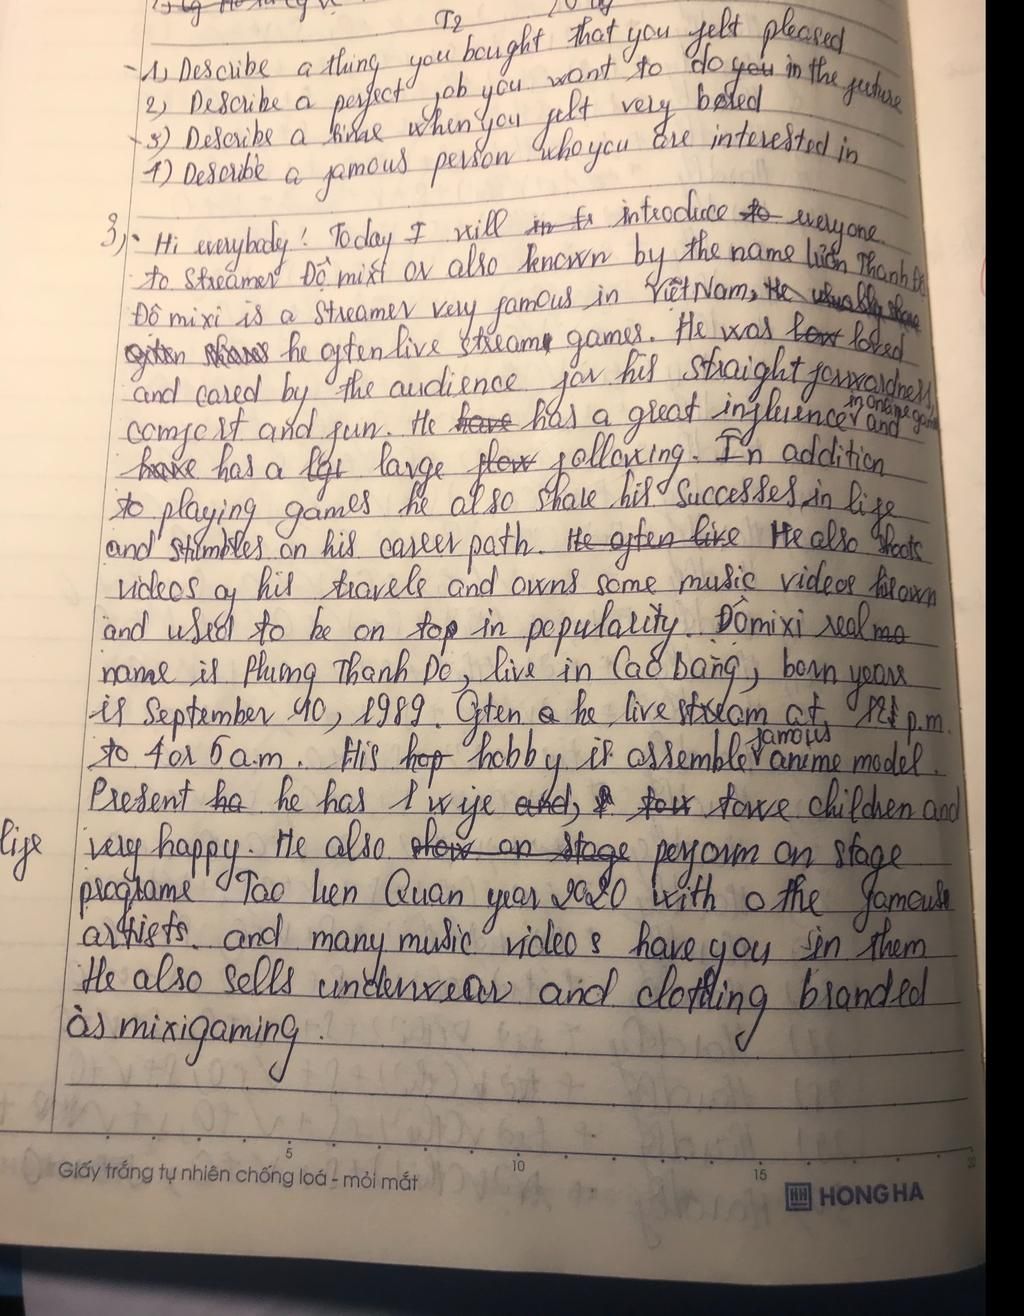 T2
1) Describe a thing you bought that you felt pleased
2) Describe a perfect job you want to do you in the future
3) Describe a time when you felt very bored
4) Describe a famous person who you are interested in
3) Hi everybody! Today I will introduce to everyone
to Streamer Độ mixi or also known by the name
Độ mixi is a Streamer very famous in Việt Nam, He usually
often shares he often live stream games. He was loved
and cared by the audience for his straight forwardness,
in online game
comfort and fun. He have has a great influence and
have has a large follow following. In addition
to playing games he also share his Successes in life
and stumbles on his career path. He often live He also shoots
videos of his travels and owns some music videos
and used to be on top in popularity. Độ mixi real
name is Phung Thanh Do, live in Cao bằng, born years
is September 10, 1989. Often he live stream at p.m.
famous
to 4 or 5 a.m. His hobby is assemble anime model.
Present he has 1 wife and, towe children and
life
very happy. He also show on stage perform on stage
programe Tao Quan year 2020 with othe famouse
artists. and many music videos have you in them
He also sells underwear and clothing branded
as mixigaming.
5
10
15
Giấy trắng tự nhiên chống loá - mỏi mắt
HH HONG HA